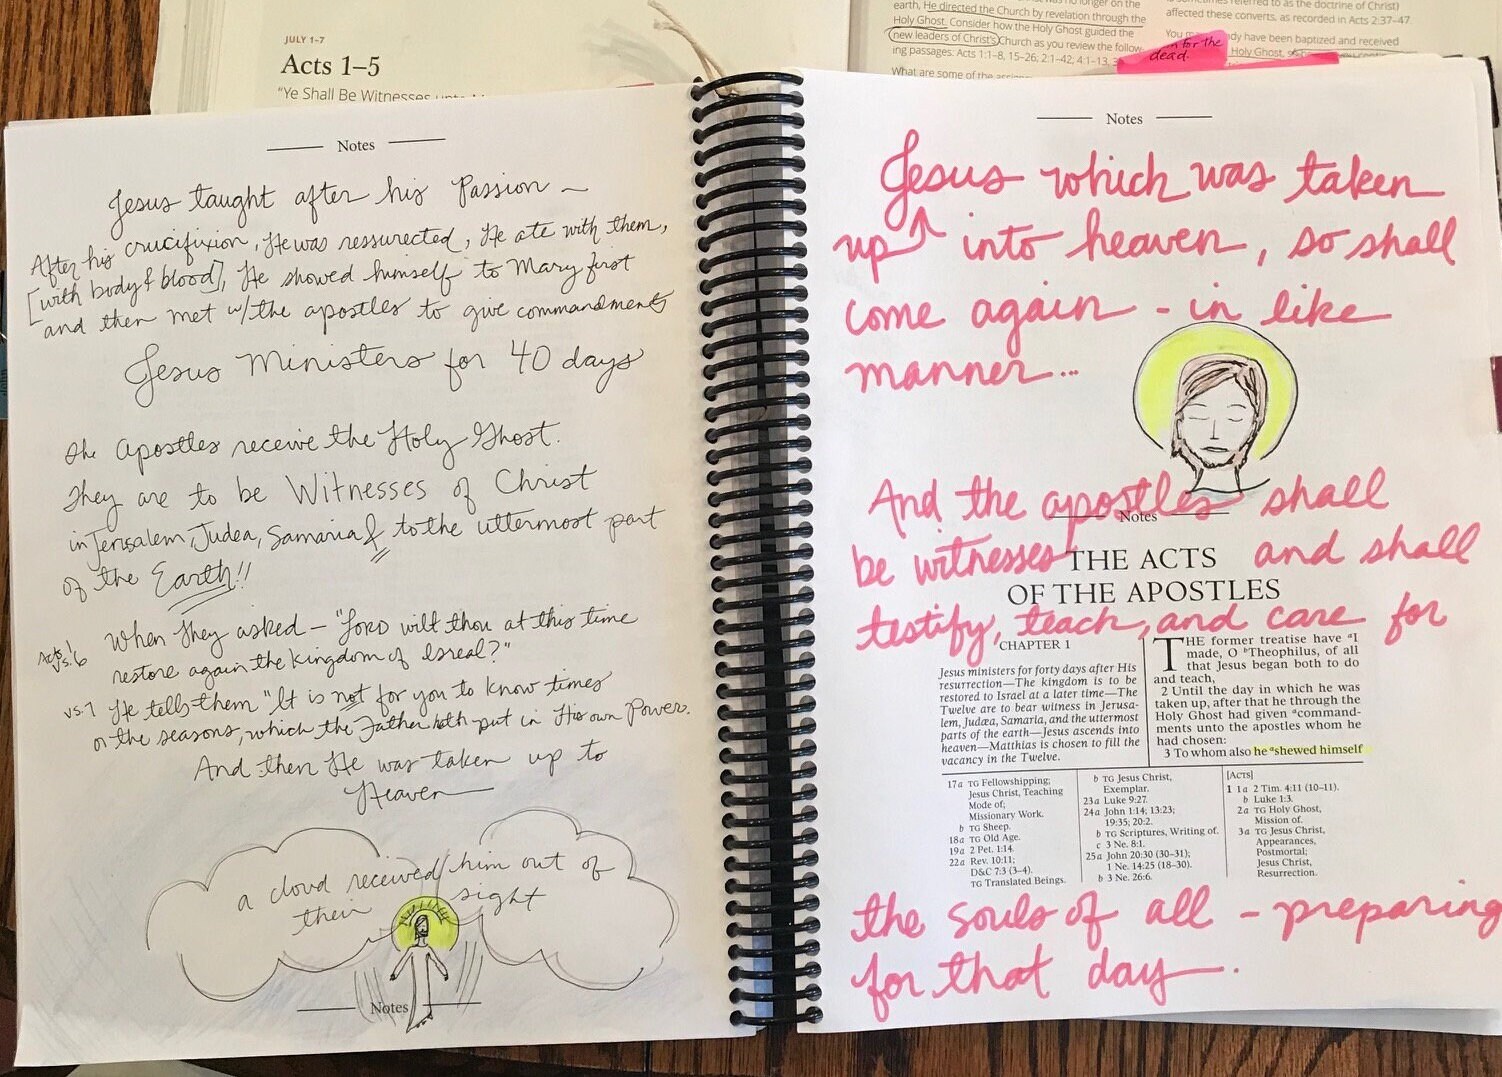 JULY 1–7
Acts 1–5
"Ye Shall Be Witnesses
longer on the
earth, He directed the Church by revelation through the
Holy Ghost. Consider how the Holy Ghost guided the
new leaders of Christ's Church as you review the follow-
ing passages. Acts 1:1–8, 15–26; 2:1–42; 4:1–13,
What are some of the
referred to as the doctrine of Christ)
affected these converts, as recorded in Acts 2:37–47
You dy have been baptized and received
Holy Ghost,
for the
dead.
Notes
Jesus taught after his Passion –
After his crucifixion, He was ressurected, He ate with them,
[with body & blood], He showed himself to Mary first
and then met w/the apostles to give commandments
Jesus Ministers for 40 days
The Apostles receive the Holy Ghost.
They are to be Witnesses of Christ
in Jerusalem, Judea, Samaria & to the uttermost part
of the Earth!!
Acts 1
vs. 6
When they asked – "LORD wilt thou at this time
restore again the kingdom of Isreal?"
vs. 7 He tells them "It is not for you to know times
or the seasons, which the Father hath put in His own Power.
And then He was taken up to
Heaven
a cloud received him out of
their sight
Notes
Notes
Jesus which was taken
up into heaven, so shall
come again - in like
manner...
And the apostles shall
Notes
be witnesses and shall
THE ACTS
OF THE APOSTLES
testify, teach, and care for
CHAPTER 1
Jesus ministers for forty days after His
resurrection—The kingdom is to be
restored to Israel at a later time—The
Twelve are to bear witness in Jerusa-
lem, Judæa, Samaria, and the uttermost
parts of the earth—Jesus ascends into
heaven—Matthias is chosen to fill the
vacancy in the Twelve.
THE former treatise have aI
made, O bTheophilus, of all
that Jesus began both to do
and teach,
2 Until the day in which he was
taken up, after that he through the
Holy Ghost had given acommand-
ments unto the apostles whom he
had chosen:
3 To whom also he ashewed himself
17a TG Fellowshipping;
Jesus Christ, Teaching
Mode of;
Missionary Work.
b TG Sheep.
18a TG Old Age.
19a 2 Pet. 1:14.
22a Rev. 10:11;
D&C 7:3 (3–4).
TG Translated Beings.
b TG Jesus Christ,
Exemplar.
23a Luke 9:27.
24a John 1:14; 13:23;
19:35; 20:2.
b TG Scriptures, Writing of.
c 3 Ne. 8:1.
25a John 20:30 (30–31);
1 Ne. 14:25 (18–30).
b 3 Ne. 26:6.
[ACTS]
1 1a 2 Tim. 4:11 (10–11).
b Luke 1:3.
2a TG Holy Ghost,
Mission of.
3a TG Jesus Christ,
Appearances,
Postmortal;
Jesus Christ,
Resurrection.
the souls of all - preparing
for that day.